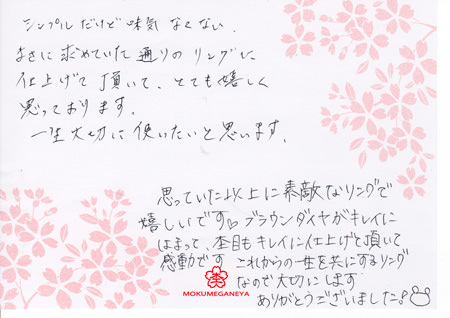 シンプルだけど味気なくない、
まさに求めていた通りのリングに
仕上げて頂いて、とても嬉しく
思っております。
一生大切に使いたいと思います。
思っていた以上に素敵なリングで
嬉しいです♡ブラウンダイヤがキレイに
はまって、杢目もキレイに仕上げて頂いて
感動です これからの一生を共にするリング
なので大切にします
ありがとうございました!
MOKUMEGANEYA